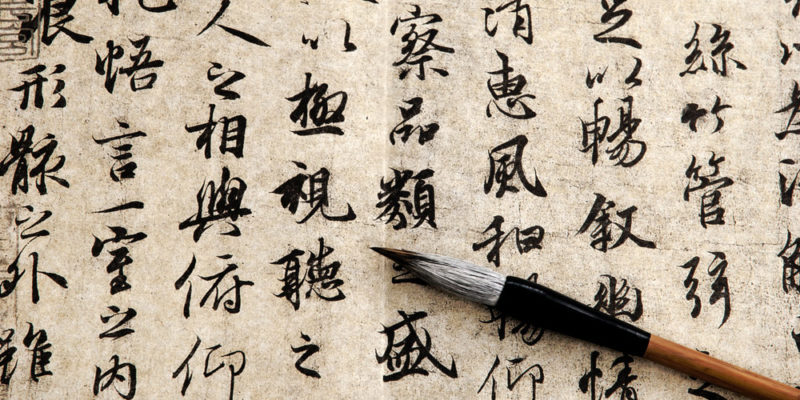 絲竹管弦之
足以暢叙幽情
清惠風和暢仰
察品類之盛
以極視聽之
人之相與俯仰
抱悟言一室之內
浪形骸之外雖